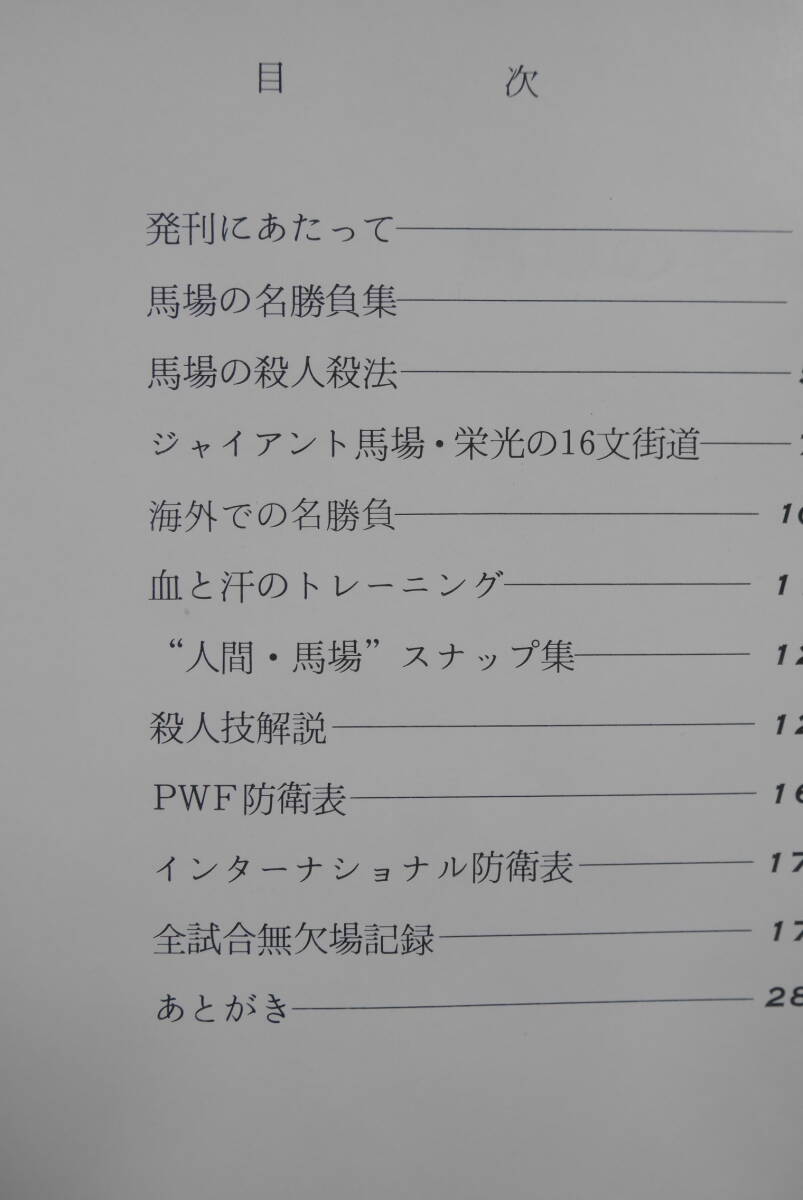 目次
発刊にあたって
馬場の名勝負集
馬場の殺人殺法
ジャイアント馬場・栄光の16文街道
海外での名勝負 10
血と汗のトレーニング 1
“人間・馬場”スナップ集 12
殺人技解説 12
PWF防衛表 16
インターナショナル防衛表 17
全試合無欠場記録 17
あとがき 28